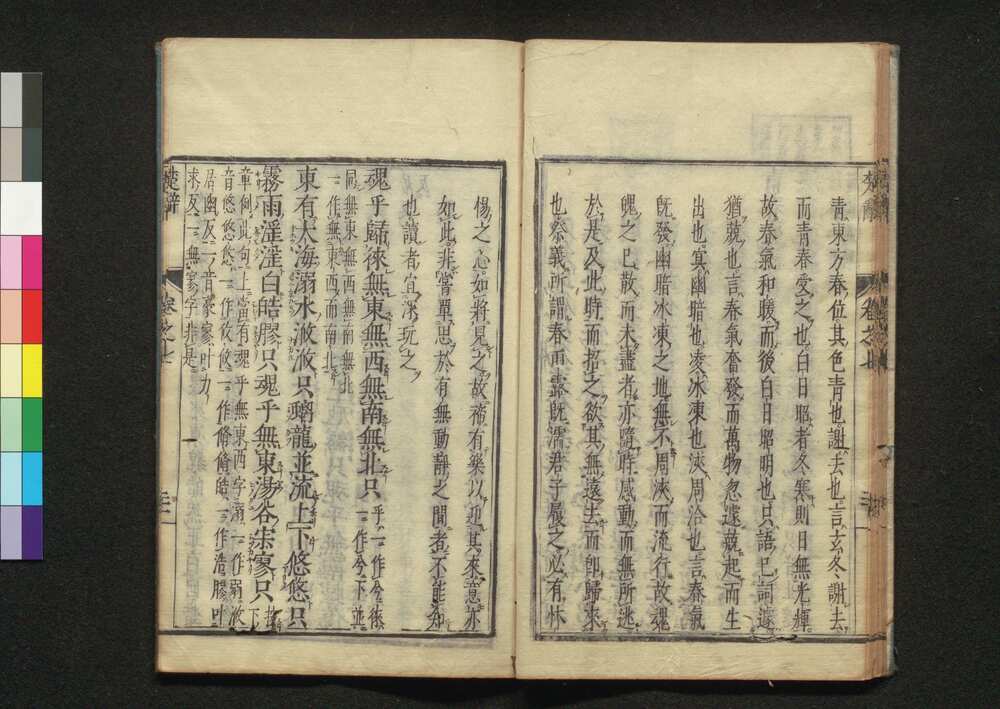 青東方春位其色青也謝去也言玄冬謝去
而青春愛之也白日昭者冬寒則日無光輝
故春氣和暖而後白日昭明也只語已詞遽
猶競也言春氣奮發而萬物忽遽競起而生
出也冥幽暗也凌冰凍也浹周洽也言春氣
既發幽暗冰凍之地無不周浹而流行故魂
魄之已散而未盡者亦隨時感動而無所逃
於是及此時而招之欲其無遠去而卽歸來
也祭義所謂春雨露既濡君子履之必有怵
楚辭
卷之七
惕之心如將見之故禘有樂以迎其來意亦
如此非常單思於有無動靜之間者不能知
也讀者宜深玩之
魂乎歸徠無東無西無南無北只乎一作兮徠一作兮下並
同無東無西無南無北
一作無東西而南北
東有大海溺水浟浟只螭龍並流上下悠悠只
霧雨淫淫白皓膠只魂乎無東湯谷宋寥只按下
章例此句上當有魂乎無東西字溺一作弱浟
音悠悠悠一作攸攸一作翛翛皓一作浩膠叶
居幽反一音豪寥叶力
求反一無寥字非是
楚辭
卷之七